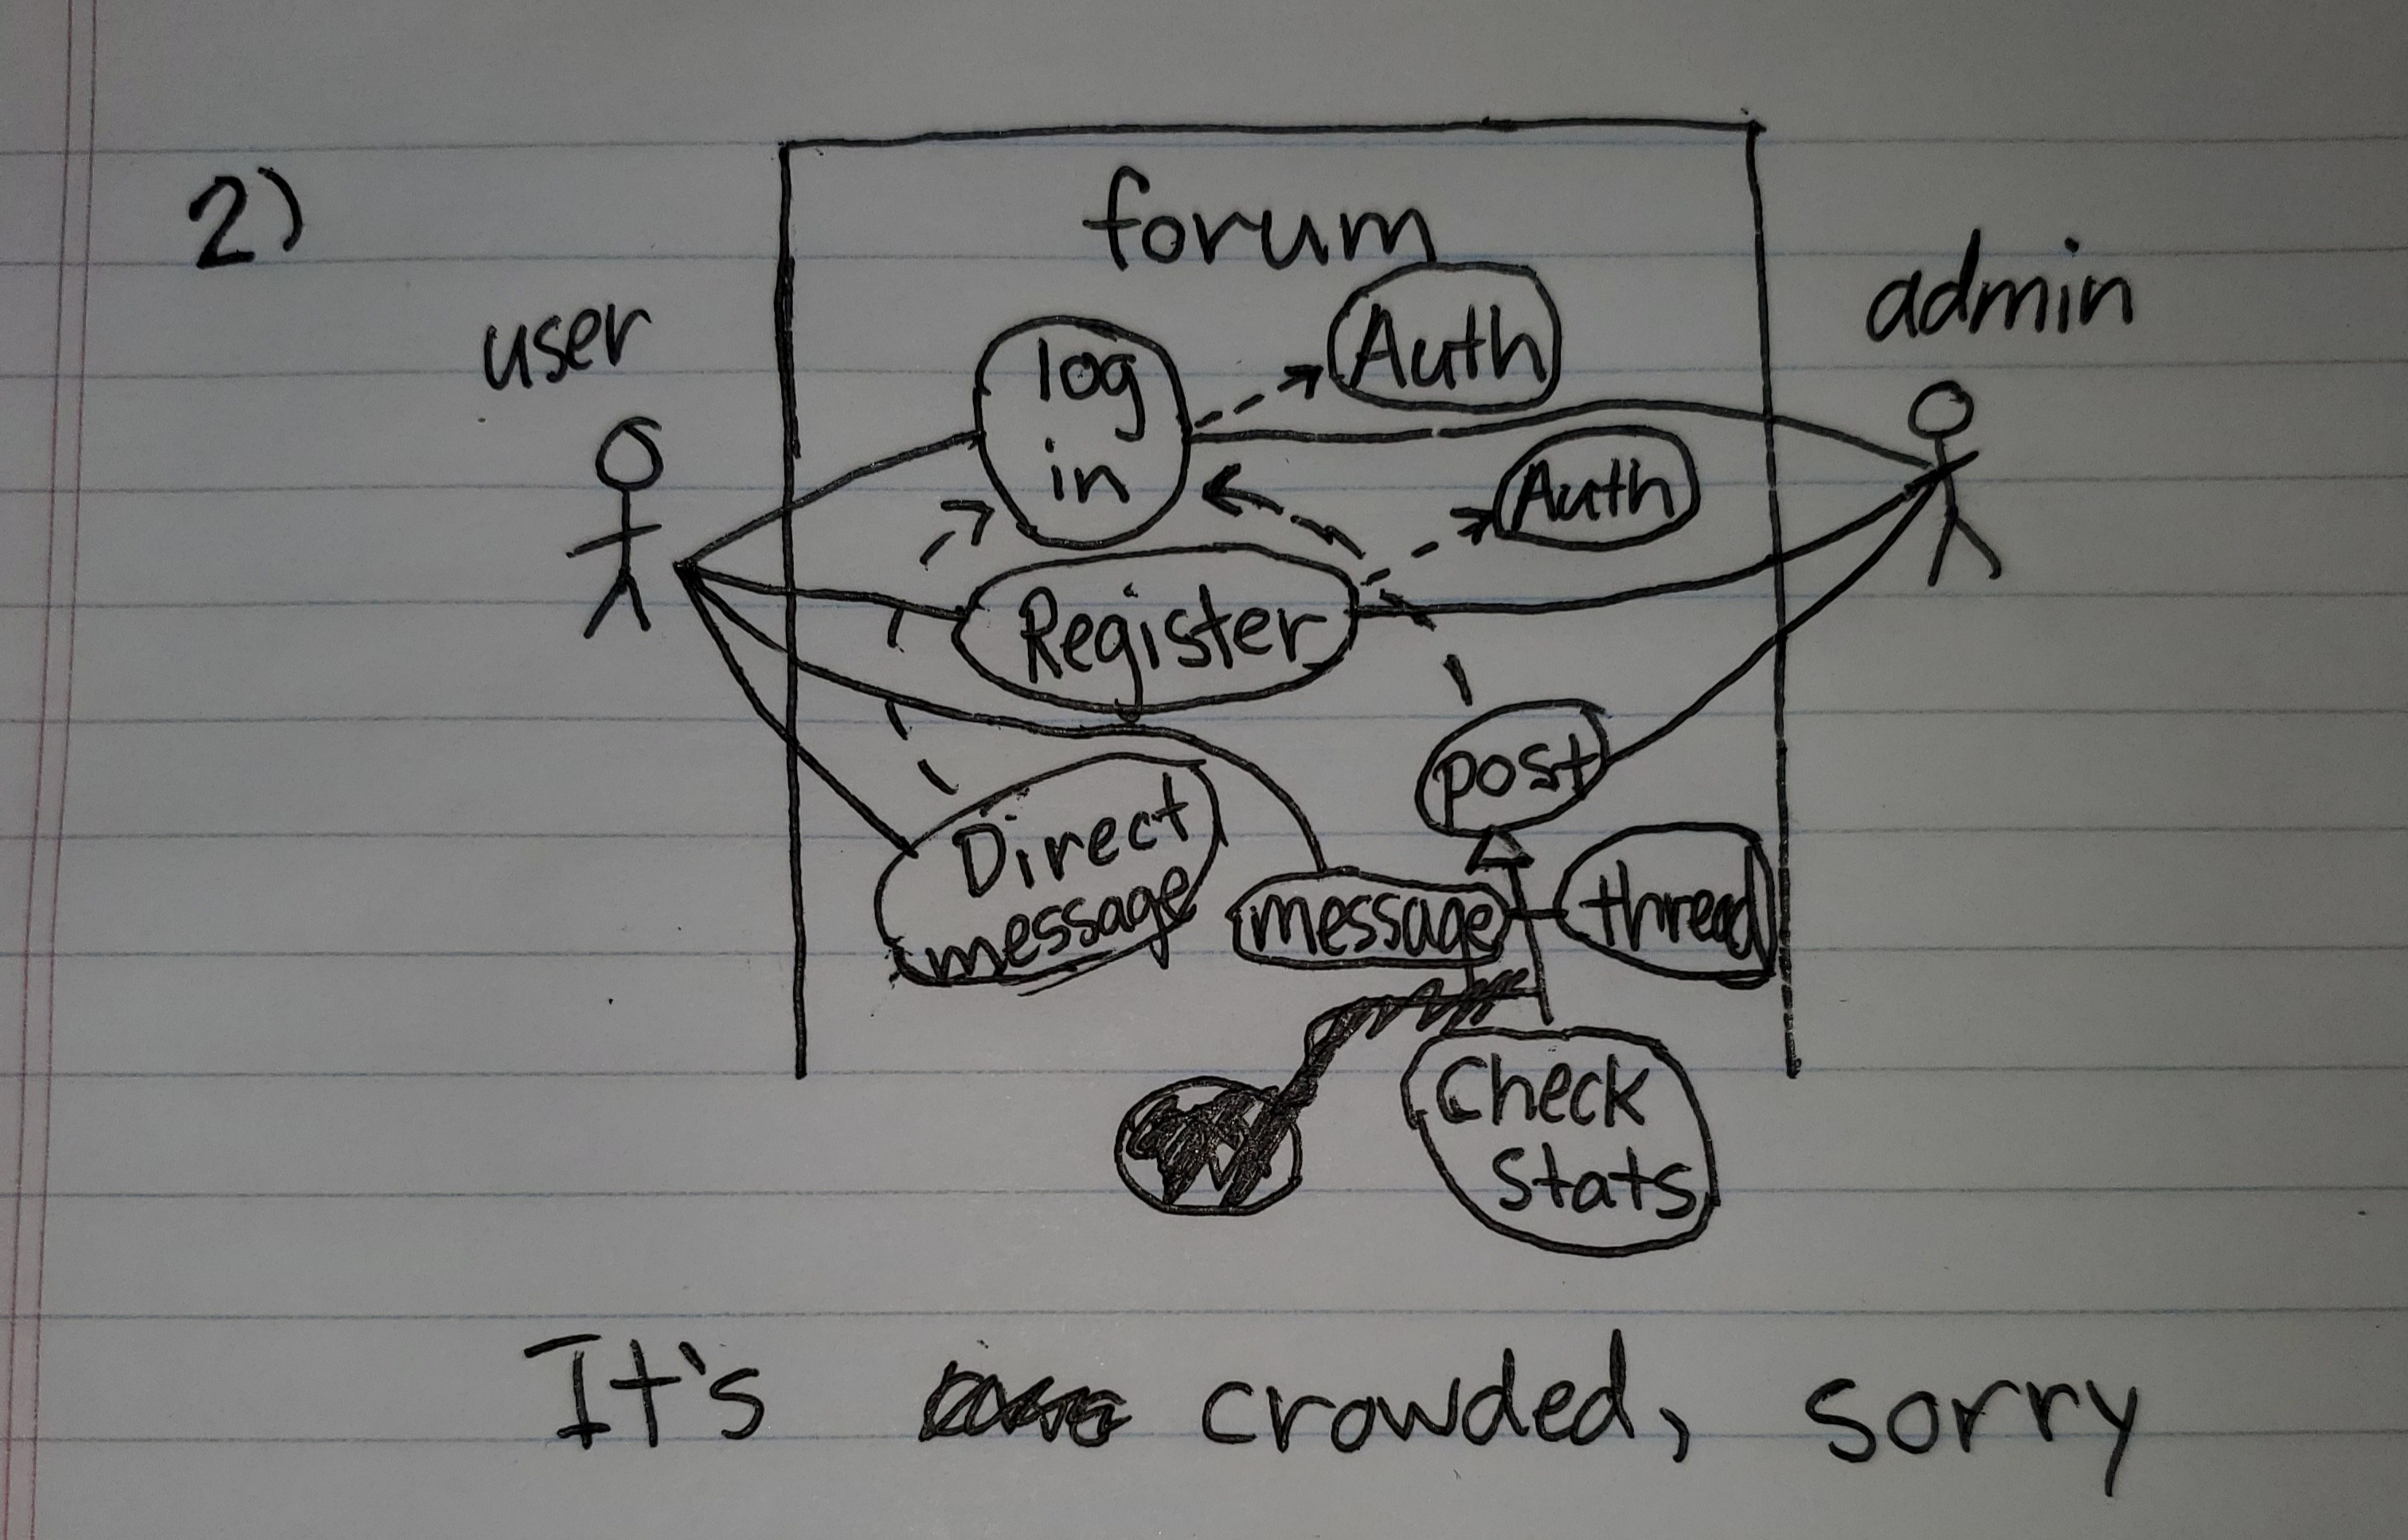 2)
forum
user
admin
log
in
Auth
Auth
Register
post
Direct
message
message
thread
Check
Stats
It's crowded, sorry